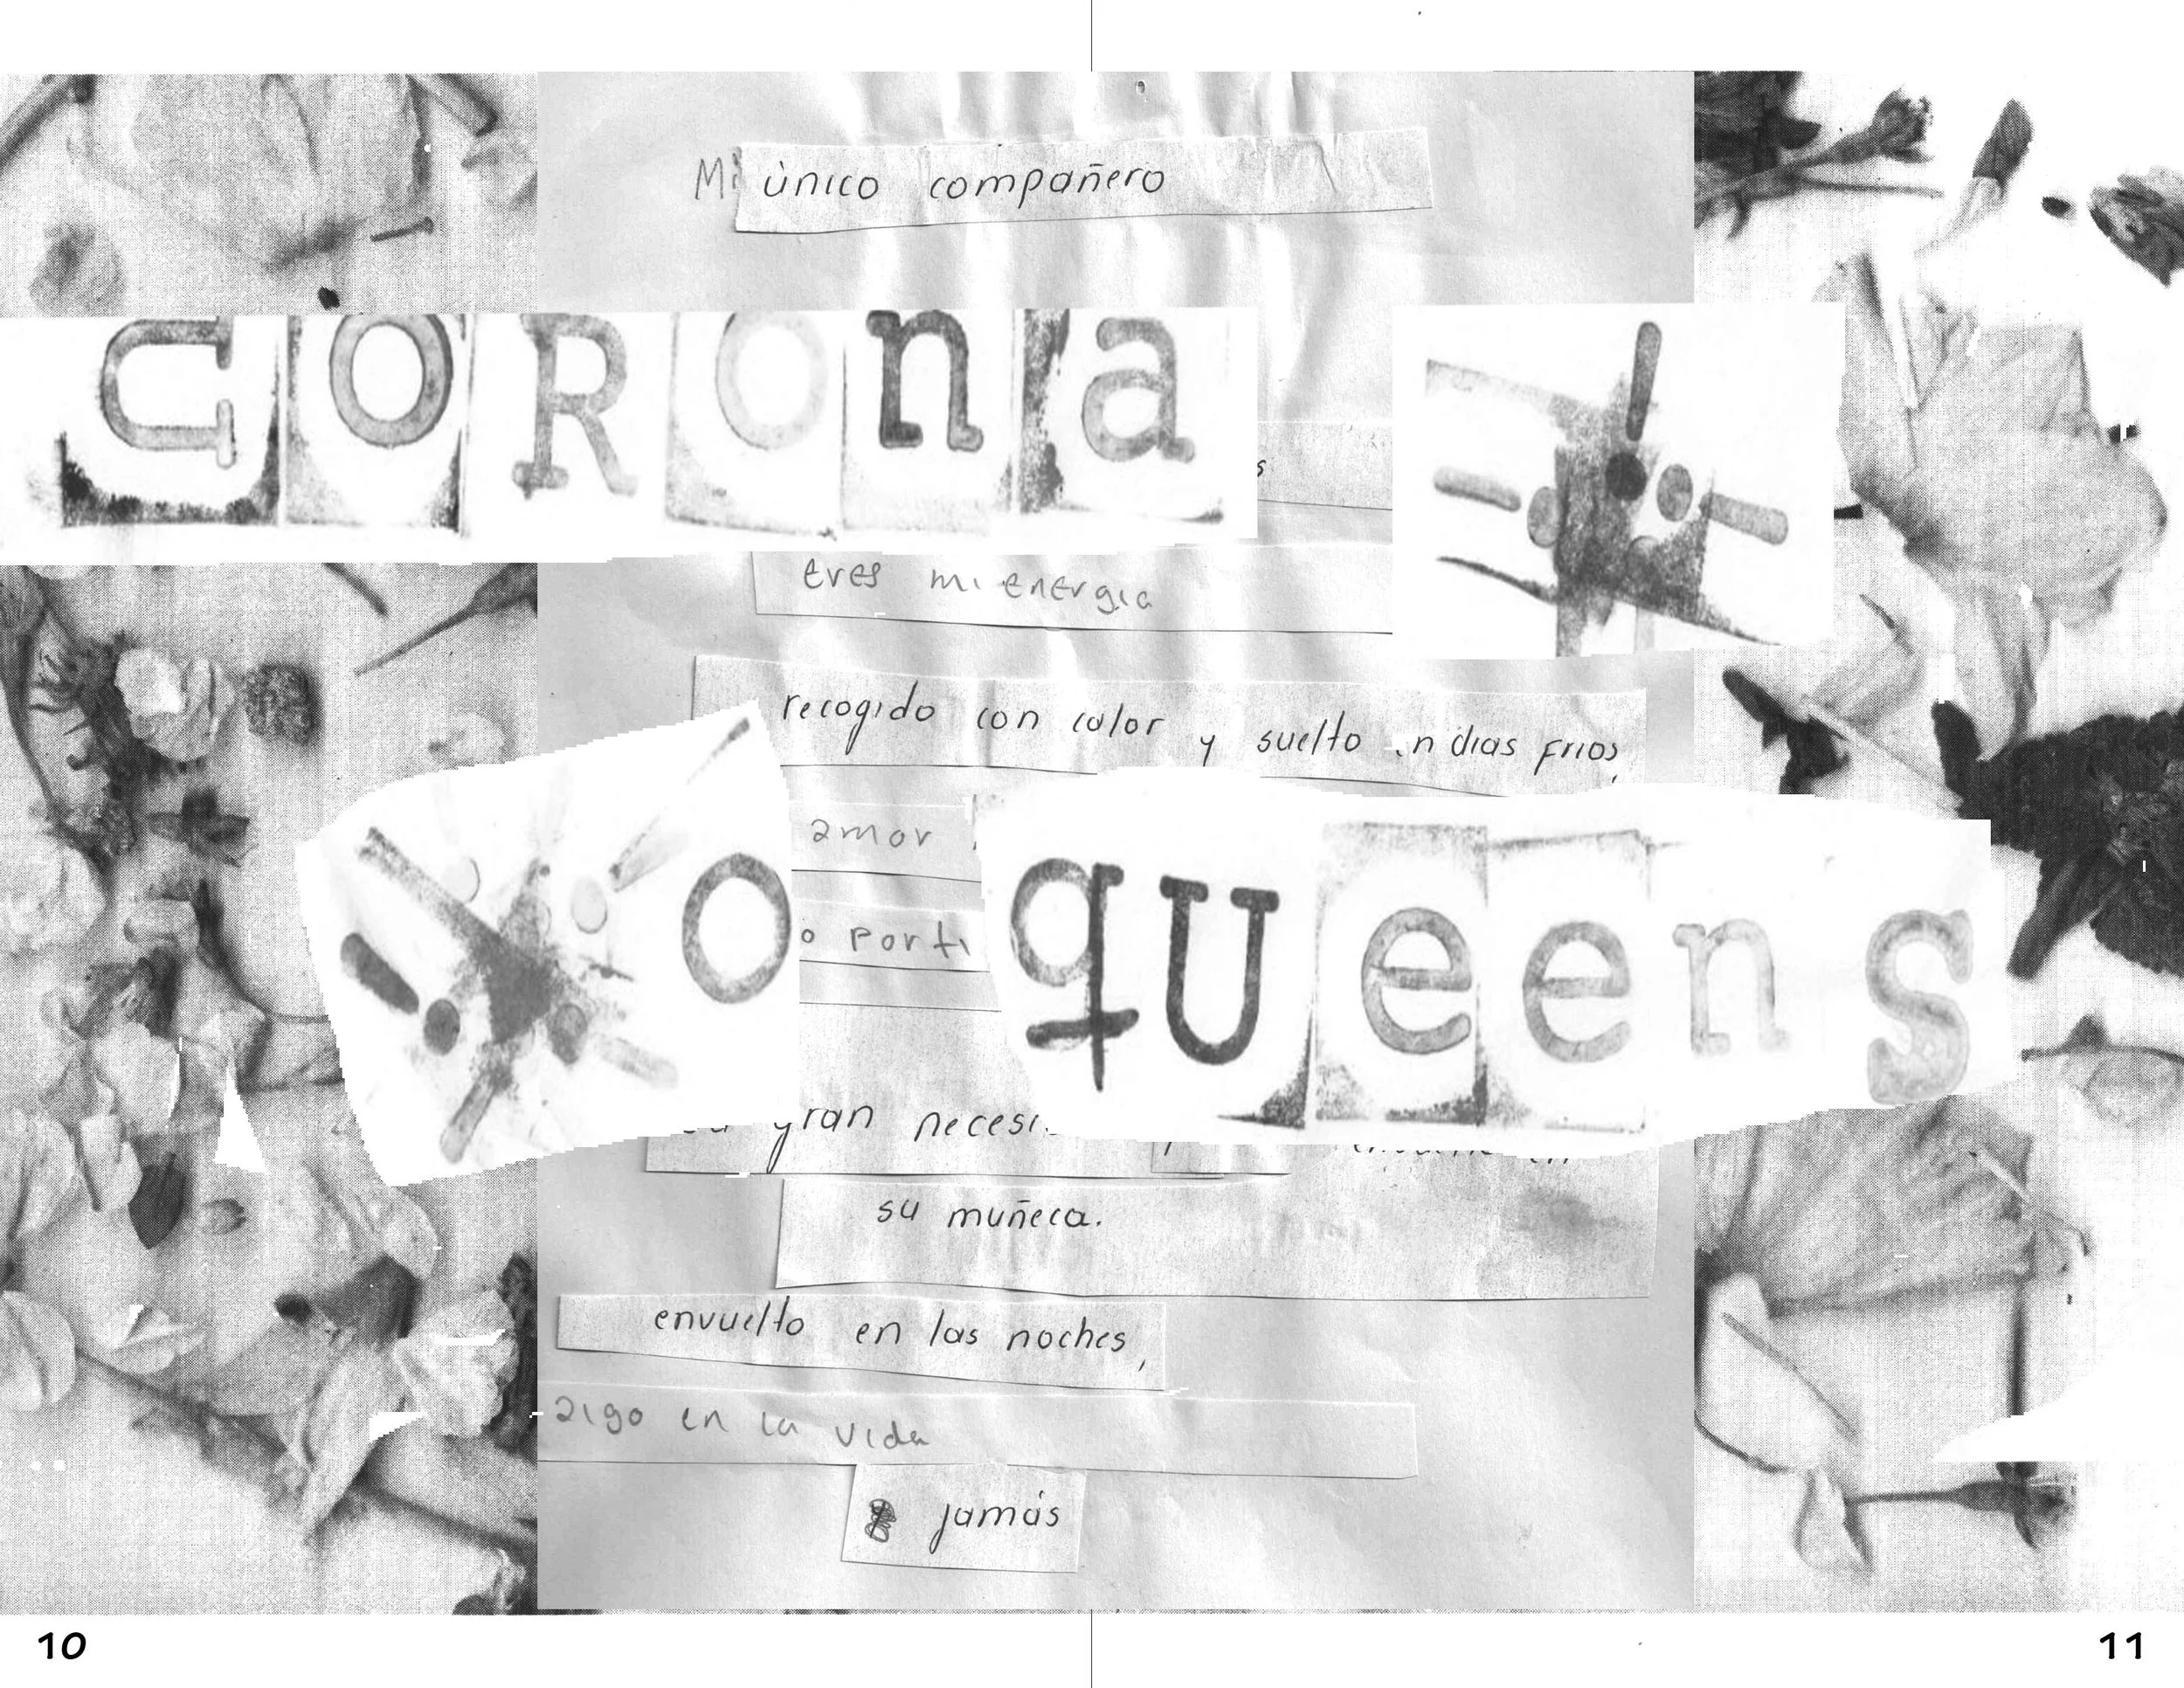 Mi único compañero
coRona
eres mi energia
recogido con color y suelto en dias frios,
amor
o por ti
o queens
gran
su muñeca.
envuelto en las noches,
algo en la vida
jamás
10
11